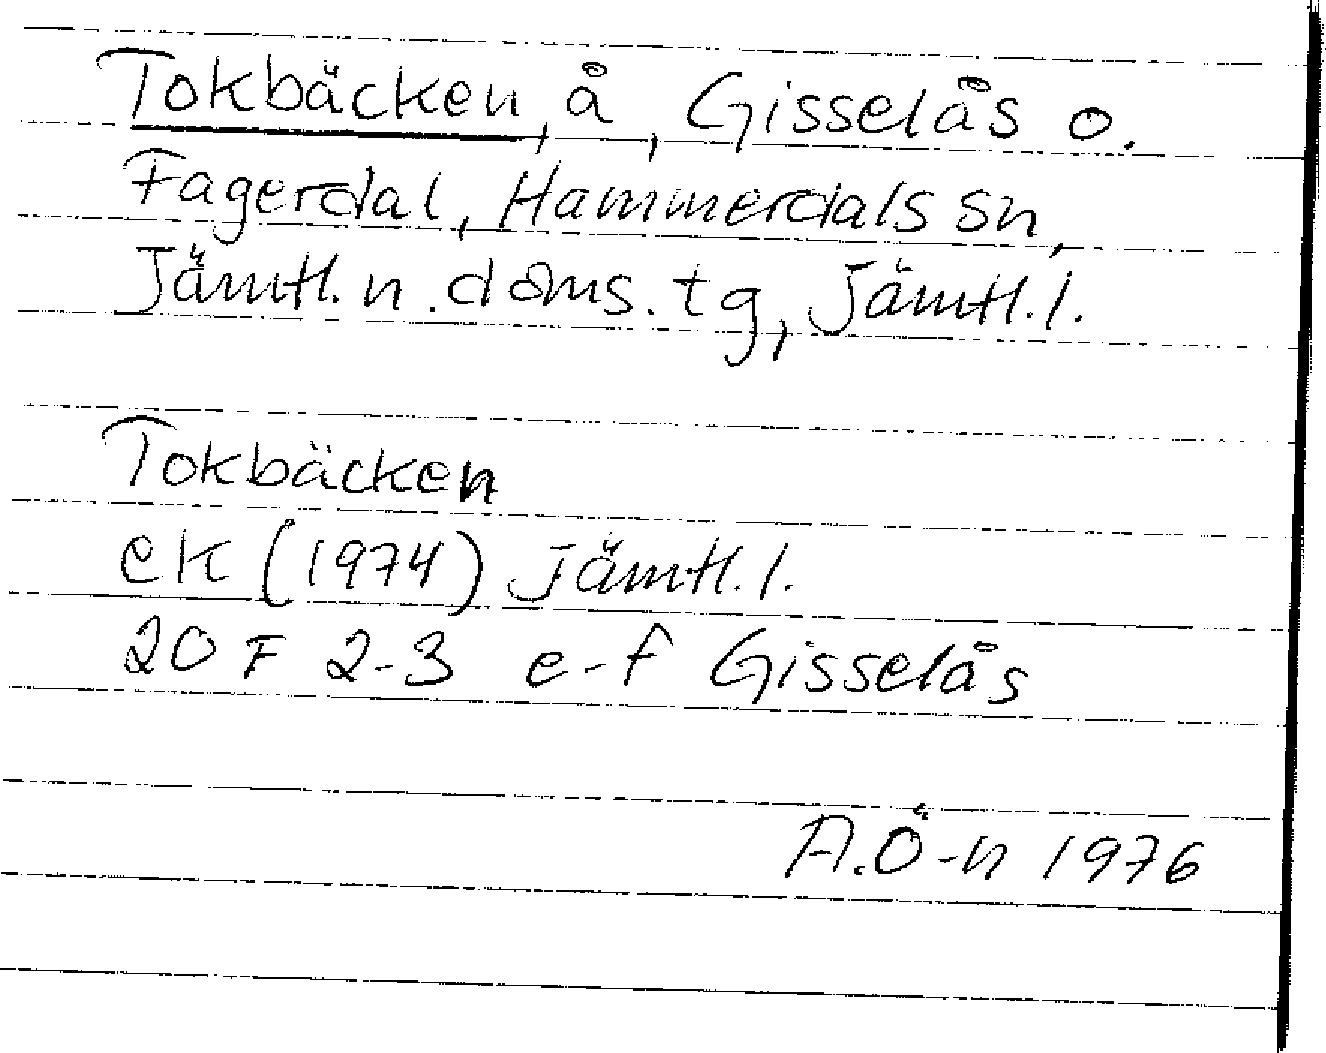 Tokbäcken, å, Gisselås o.
Fagerdal, Hammerdals sn,
Jämtl. n. doms. tg, Jämtl. l.
Tokbäcken
ek (1974) Jämtl. l.
20 F 2-3 e-f Gisselås
A.Ö-n 1976